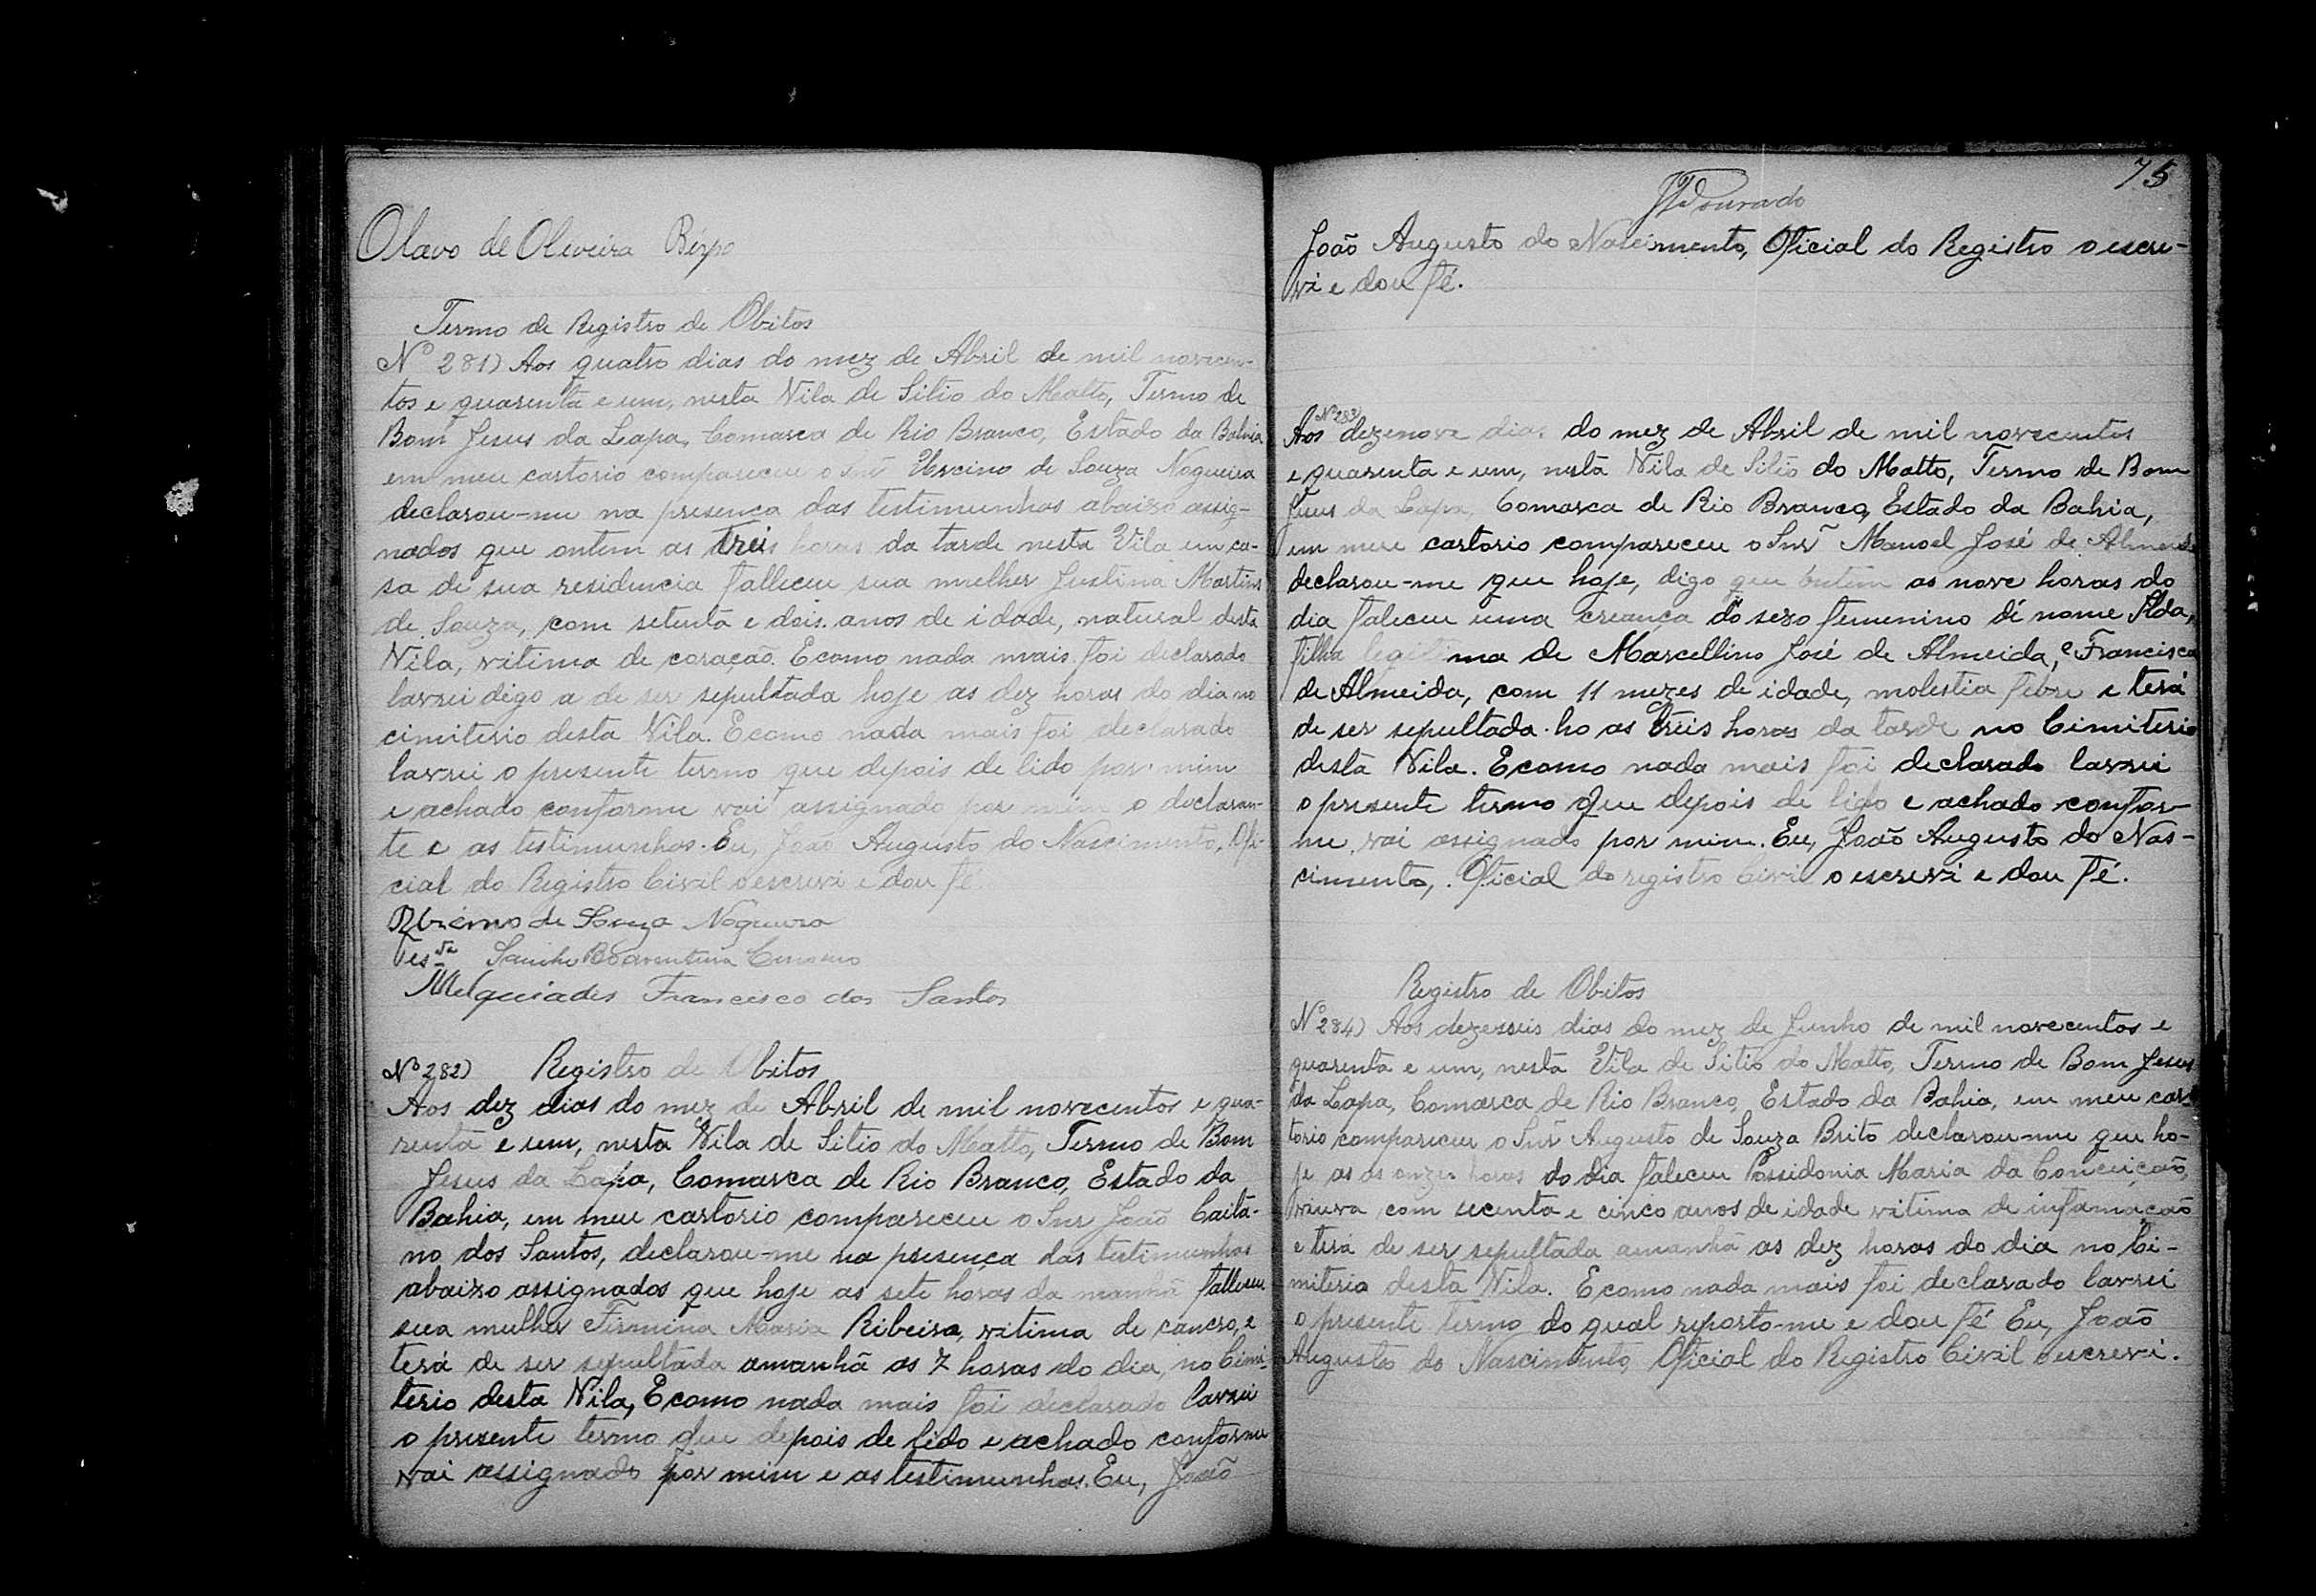 Olavo de Oliveira Bispo
Termo de Registro de Obitos
Nº 281) Aos quatro dias do mez de Abril de mil novecen-
tos e quarenta e um, nesta Vila de Sitio do Matto, Termo de
Bom Jesus da Lapa, Comarca de Rio Branco, Estado da Bahia
em meu cartorio compareceu o snr Ursino de Souza Nogueira
declarou-me na presença das testimunhas abaixo assig-
nados que ontem as treis horas da tarde nesta Vila em ca-
sa de sua residencia falleceu sua mulher Justina Martins
de Souza, com setenta e dois anos de idade, natural desta
Vila, vitima de coração. E como nada mais foi declarado
lavrei digo a de ser sepultada hoje as dez horas do dia no
cimiterio desta Vila. E como nada mais foi declarado
lavrei o presente termo que depois de lido por mim
e achado conforme vai assignado por mim o declaran-
te e as testimunhas. Eu, João Augusto do Nascimento, Ofi-
cial do Registro Civil o escrevi e dou fé.
de Souza Nogueira
Boaventura
Melquiades Francisco dos Santos
Nº 282) Registro de Obitos
Aos dez dias do mez de Abril de mil novecentos e qua-
renta e um, nesta Vila de Sitio do Matto, Termo de Bom
Jesus da Lapa, Comarca de Rio Branco, Estado da
Bahia, em meu cartorio compareceu o Snr João Caita-
no dos Santos, declarou-me na presença das testimunhas
abaixo assignados que hoje as sete horas da manhã falleceu
sua mulher Firmina Maria Ribeiro, vitima de cancro, e
terá de ser sepultada amanhã as 7 horas do dia, no Cimi-
terio desta Vila, E como nada mais foi declarado lavrei
o presente termo que depois de lido e achado conforme
vai assignado por mim e as testimunhas. Eu, João
75
JDourado
João Augusto do Nascimento, Oficial do Registro o escre-
vi e dou fé.
Nº 283)
Aos dezenove dias do mez de Abril de mil novecentos
e quarenta e um, nesta Vila de Sitio do Matto, Termo de Bom
Jesus da Lapa, Comarca de Rio Branco, Estado da Bahia,
em meu cartorio compareceu o Snr Manoel José de Almeida
declarou-me que hoje, digo que ontem as nove horas do
dia faleceu uma creança do sexo femenino de nome Alda,
filha legitima de Marcellino José de Almeida, e Francisca
de Almeida, com 11 mezes de idade, molestia febre e terá
de ser sepultada ho as treis horas da tarde no Cimiterio
desta Vila. E como nada mais foi declarado lavrei
o presente termo que depois de lido e achado confor-
me, vai assignado por mim. Eu, João Augusto do Nas-
cimento, Oficial do registro Civil o escrevi e dou fé.
Registro de Obitos
Nº 284) Aos dezesseis dias do mez de Junho de mil novecentos e
quarenta e um, nesta Vila de Sitio do Matto, Termo de Bom Jesus
da Lapa, Comarca de Rio Branco, Estado da Bahia, em meu car-
torio compareceu o Snr Augusto de Souza Brito declarou-me que ho-
je as as onze horas do dia faleceu Possidonia Maria da Conceição,
viuva com secenta e cinco anos de idade vitima de infamação
e terá de ser sepultada amanhã as dez horas do dia no Ci-
miterio desta Vila. E como nada mais foi declarado lavrei
o presente termo do qual reporto-me e dou fé Eu, João
Augusto do Nascimento, Oficial do Registro Civil o escrevi.